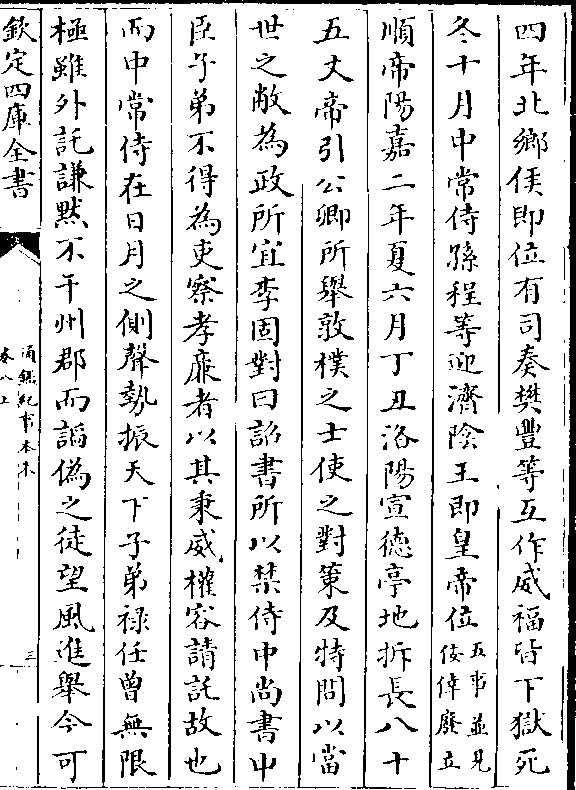 四年北鄉侯即位有司奏樊豐等互作威福皆下獄死
冬十月中常侍孫程等迎濟陰王即皇帝位五事並見佞倖廢立
順帝陽嘉二年夏六月丁丑洛陽宣德亭地拆長八十
五丈帝引公卿所舉敦樸之士使之對策及特問以當
世之敝為政所宜李固對曰詔書所以禁侍中尚書中
臣子弟不得為吏察孝廉者以其秉威權容請託故也
而中常侍在日月之側聲勢振天下子弟禄任曾無限
極雖外託謙黙不干州郡而諂偽之徒望風進舉今可
欽定四庫全書
通鑑紀事本末
卷八上
三